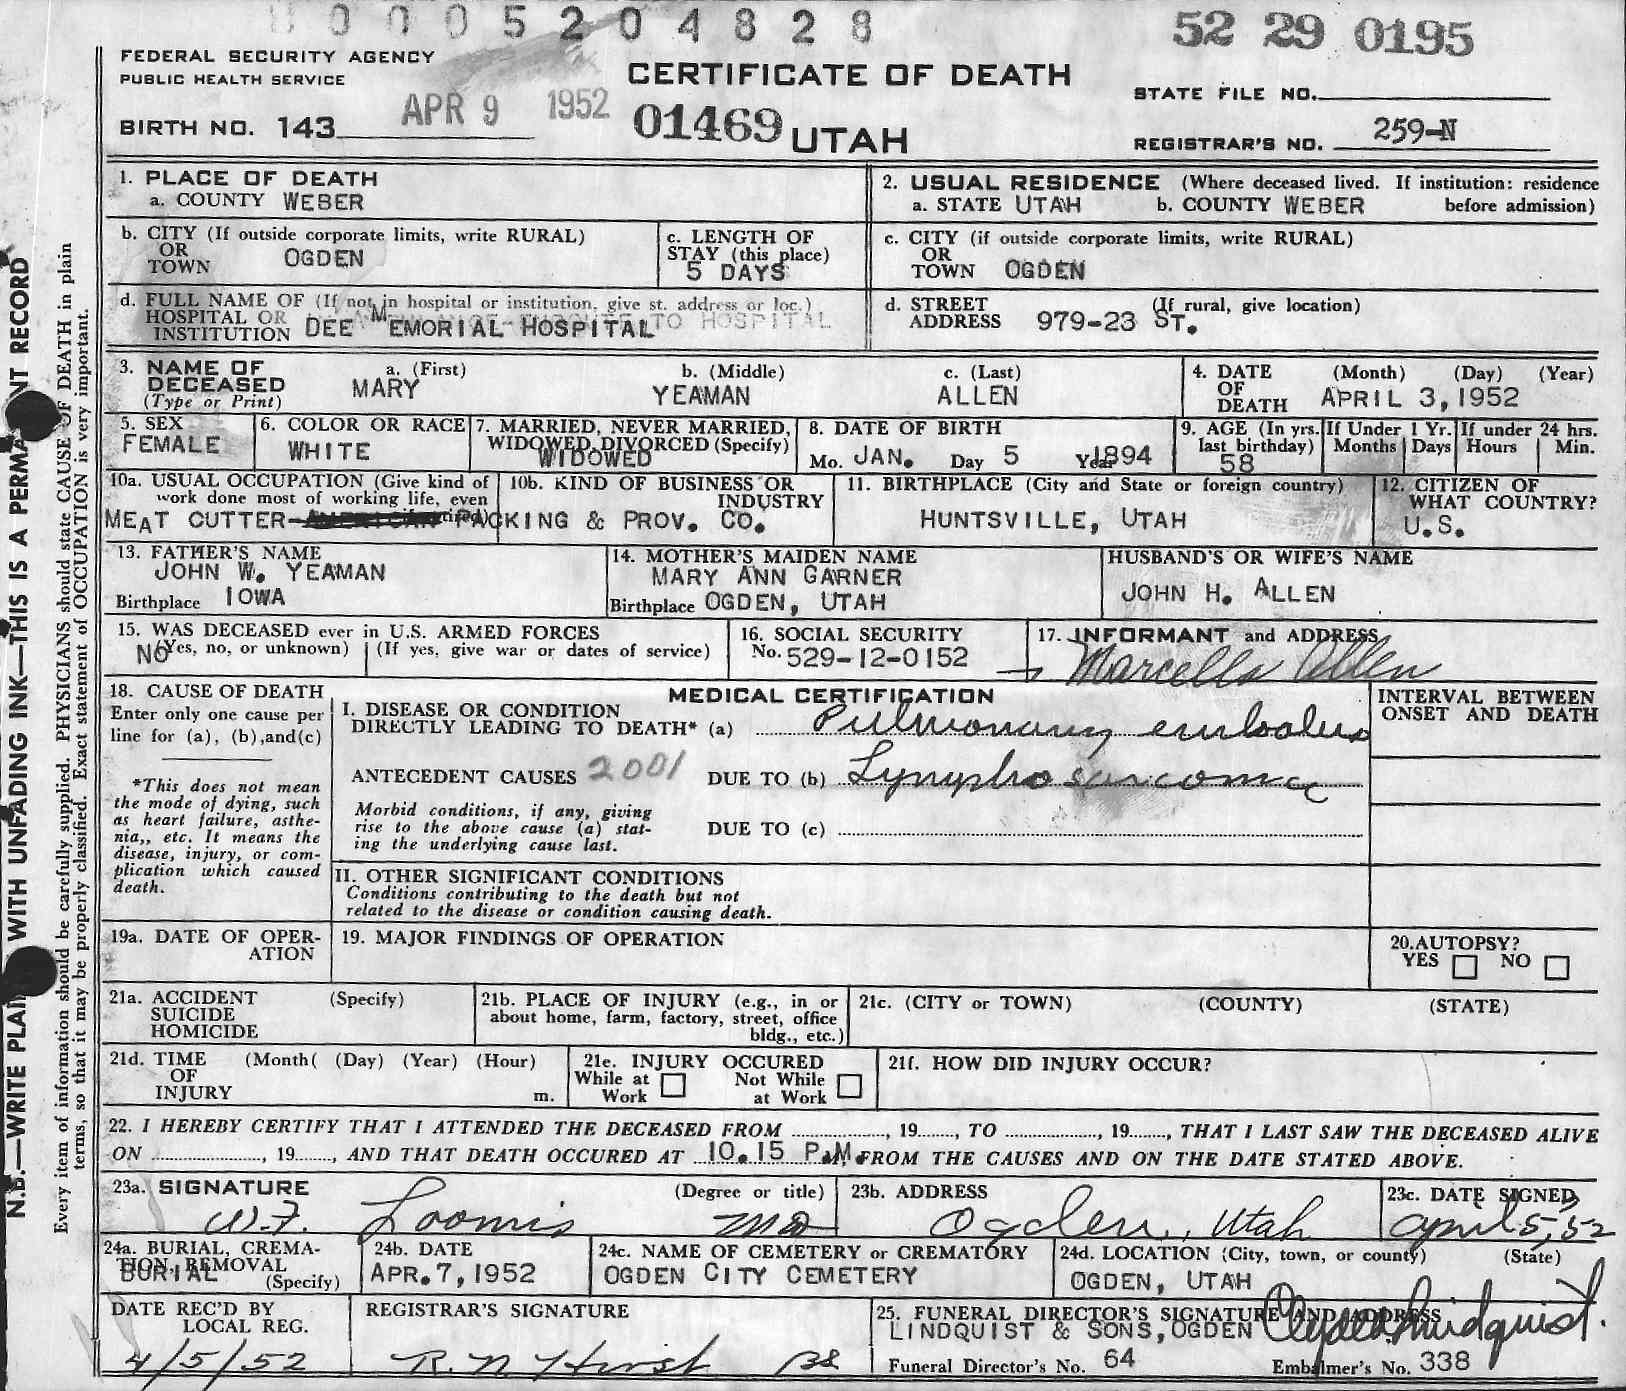 0005204828
52 29 0195
FEDERAL SECURITY AGENCY
PUBLIC HEALTH SERVICE
CERTIFICATE OF DEATH
STATE FILE NO.
APR 9 1952
BIRTH NO. 143
01469 UTAH
REGISTRAR'S NO. 259-N
1. PLACE OF DEATH
a. COUNTY WEBER
2. USUAL RESIDENCE (Where deceased lived. If institution: residence before admission)
a. STATE UTAH b. COUNTY WEBER
b. CITY (If outside corporate limits, write RURAL)
OR
TOWN OGDEN
c. LENGTH OF
STAY (this place)
5 DAYS
c. CITY (if outside corporate limits, write RURAL)
OR
TOWN OGDEN
d. FULL NAME OF (If not in hospital or institution, give st. address or loc.)
HOSPITAL OR
INSTITUTION DEE MEMORIAL HOSPITAL
TO HOSPITAL
d. STREET (If rural, give location)
ADDRESS 979-23 ST.
3. NAME OF
DECEASED
(Type or Print)
a. (First)
MARY
b. (Middle)
YEAMAN
c. (Last)
ALLEN
4. DATE (Month) (Day) (Year)
OF
DEATH APRIL 3, 1952
5. SEX
FEMALE
6. COLOR OR RACE
WHITE
7. MARRIED, NEVER MARRIED,
WIDOWED, DIVORCED (Specify)
WIDOWED
8. DATE OF BIRTH
Mo. JAN. Day 5 Year 1894
9. AGE (In yrs.
last birthday)
58
If Under 1 Yr.
Months Days
If under 24 hrs.
Hours Min.
10a. USUAL OCCUPATION (Give kind of
work done most of working life, even
MEAT CUTTER-
10b. KIND OF BUSINESS OR
INDUSTRY
PACKING & PROV. CO.
11. BIRTHPLACE (City and State or foreign country)
HUNTSVILLE, UTAH
12. CITIZEN OF
WHAT COUNTRY?
U.S.
13. FATHER'S NAME
JOHN W. YEAMAN
Birthplace IOWA
14. MOTHER'S MAIDEN NAME
MARY ANN GARNER
Birthplace OGDEN, UTAH
HUSBAND'S OR WIFE'S NAME
JOHN H. ALLEN
15. WAS DECEASED ever in U.S. ARMED FORCES
NO (Yes, no, or unknown) (If yes, give war or dates of service)
16. SOCIAL SECURITY
No. 529-12-0152
17. INFORMANT and ADDRESS
Marcella Allen
18. CAUSE OF DEATH
Enter only one cause per
line for (a), (b), and (c)
*This does not mean
the mode of dying, such
as heart failure, asthe-
nia,, etc. It means the
disease, injury, or com-
plication which caused
death.
MEDICAL CERTIFICATION
I. DISEASE OR CONDITION
DIRECTLY LEADING TO DEATH* (a) Pulmonary embolus
ANTECEDENT CAUSES 2001 DUE TO (b) Lymphosarcoma
Morbid conditions, if any, giving
rise to the above cause (a) stat-
ing the underlying cause last.
DUE TO (c)
INTERVAL BETWEEN
ONSET AND DEATH
II. OTHER SIGNIFICANT CONDITIONS
Conditions contributing to the death but not
related to the disease or condition causing death.
19a. DATE OF OPER-
ATION
19. MAJOR FINDINGS OF OPERATION
20. AUTOPSY?
YES NO
21a. ACCIDENT (Specify)
SUICIDE
HOMICIDE
21b. PLACE OF INJURY (e.g., in or
about home, farm, factory, street, office
bldg., etc.)
21c. (CITY or TOWN) (COUNTY) (STATE)
21d. TIME (Month( (Day) (Year) (Hour)
OF
INJURY m.
21e. INJURY OCCURED
While at Work Not While at Work
21f. HOW DID INJURY OCCUR?
22. I HEREBY CERTIFY THAT I ATTENDED THE DECEASED FROM ................, 19......, TO ................, 19......, THAT I LAST SAW THE DECEASED ALIVE
ON ................, 19......, AND THAT DEATH OCCURED AT 10.15 P.M. FROM THE CAUSES AND ON THE DATE STATED ABOVE.
23a. SIGNATURE (Degree or title)
W.F. Loomis MD
23b. ADDRESS
Ogden, Utah
23c. DATE SIGNED
April 5, 52
24a. BURIAL, CREMA-
TION, REMOVAL
BURIAL (Specify)
24b. DATE
APR. 7, 1952
24c. NAME OF CEMETERY or CREMATORY
OGDEN CITY CEMETERY
24d. LOCATION (City, town, or county) (State)
OGDEN, UTAH
DATE REC'D BY
LOCAL REG.
4/5/52
REGISTRAR'S SIGNATURE
R. N. Hirst
25. FUNERAL DIRECTOR'S SIGNATURE AND ADDRESS
LINDQUIST & SONS, OGDEN Lindquist.
Funeral Director's No. 64 Embalmer's No. 338
N.B.—WRITE PLAINLY WITH UNFADING INK—THIS IS A PERMANENT RECORD
Every item of information should be carefully supplied. PHYSICIANS should state CAUSE OF DEATH in plain
terms, so that it may be properly classified. Exact statement of OCCUPATION is very important.